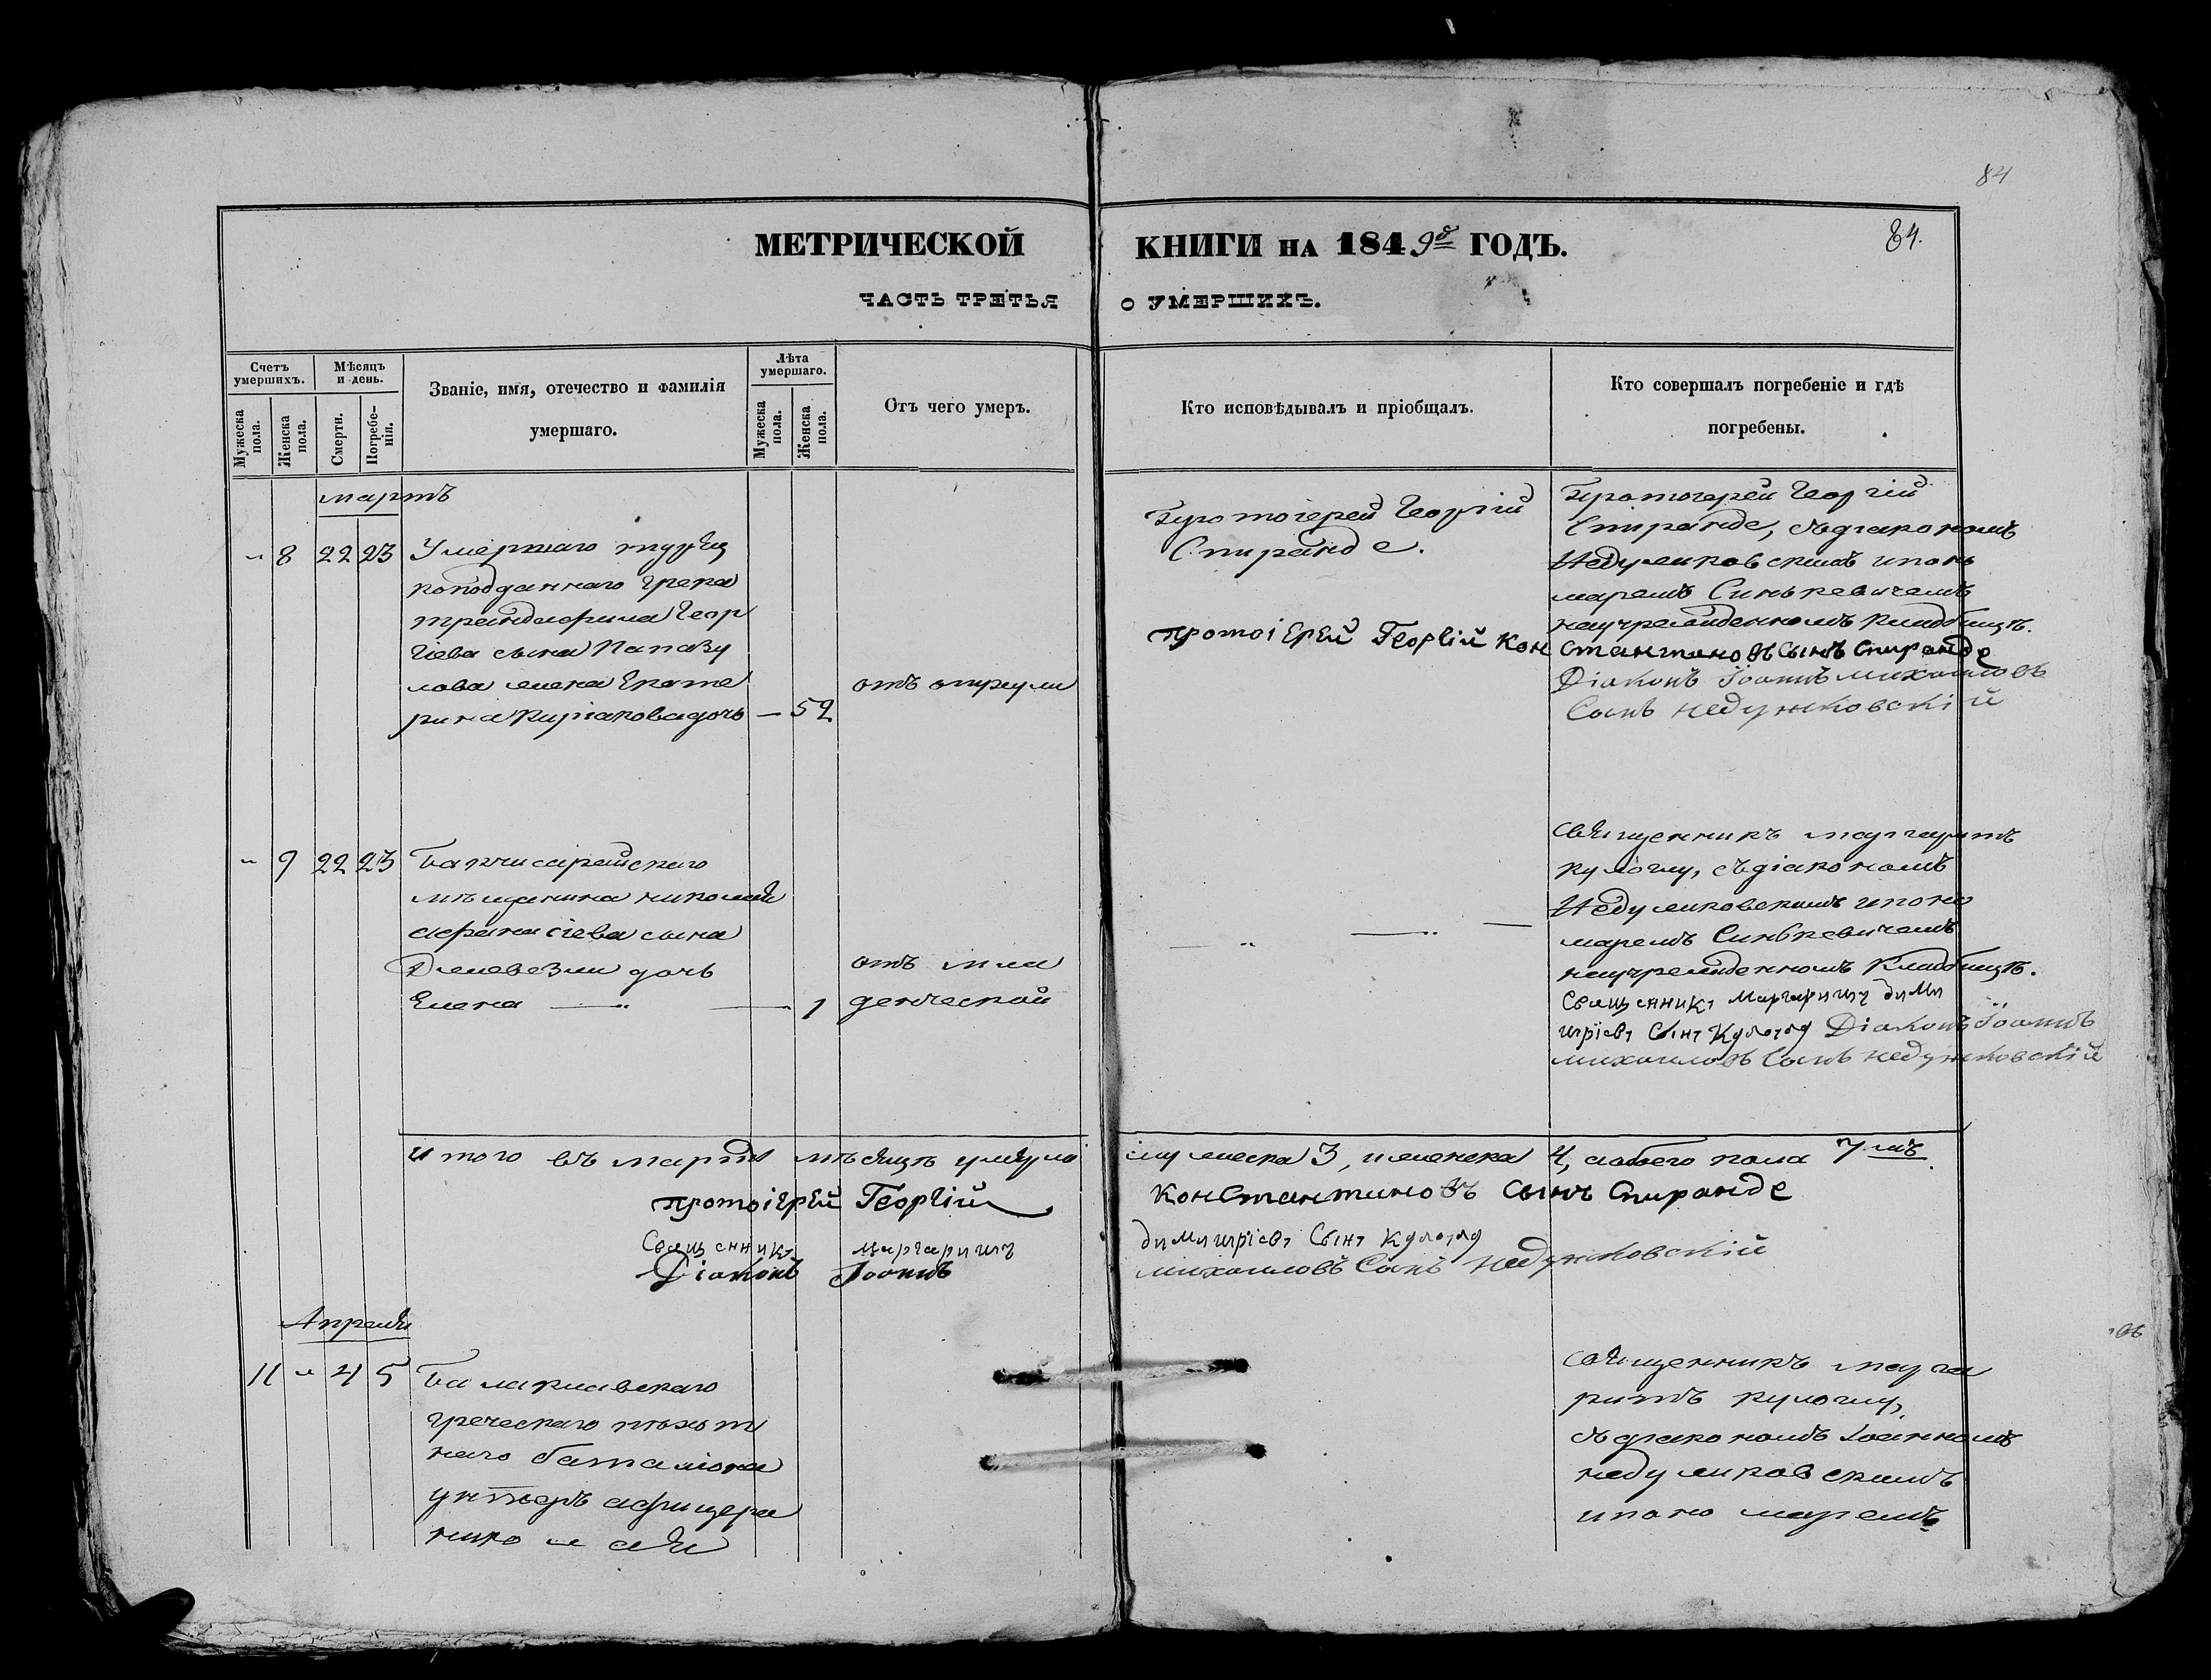 84
МЕТРИЧЕСКОЙ КНИГИ НА 1849й ГОДЪ.
84.
ЧАСТЬ ТРЕТЬЯ О УМЕРШИХЪ.
Счетъ умершихъ.
Мужеска пола.
Женска пола.
Мѣсяцъ и день.
Смерти.
Погребенія.
Званіе, имя, отечество и фамилія
умершаго.
Лѣта умершаго.
Мужеска пола.
Женска пола.
Отъ чего умеръ.
Кто исповѣдывалъ и пріобщалъ.
Кто совершалъ погребеніе и гдѣ
погребены.
мартъ
" 8 22 23
Умершаго турец
коподданнаго грека
трандафила Геор
гіева сына Папазу
лова жена Екате
рина Киріакова дочь — 52
отъ
Протоіерей Георгій
Спиранде.
протоіерей Георгій Кон
Протоіерей Георгій
Спиранде, съ діакономъ
Недужковскимъ и поно
маремъ Синькевичемъ
на учрежденномъ кладбищѣ.
стантиновъ сынъ Спиранде
Діаконъ Іоаннъ михаиловъ
Сынъ недужковскій
" 9 22 23
Бахчисарайскаго
мѣщанина николая
афанасіева сына
дочь
Елена — " — 1
отъ мла
денческой
— " — " —
священникъ маргаритъ
кулоглу, съ діакономъ
Недужковскимъ и поно
маремъ Синькевичемъ
на учрежденномъ Кладбищѣ.
Священникъ Маргаритъ дими
тріевъ Сынъ Кулоглу Діаконъ Іоаннъ
михаиловъ Сынъ недужковскій
Итого въ мартѣ мѣсяцѣ умерло мужеска 3, и женска 4, а обоего пола 7мь.
протоіерей Георгій Константиновъ сынъ Спиранде
Священникъ маргаритъ димитріевъ Сынъ Кулоглу
Діаконъ Іоаннъ михаиловъ Сынъ недужковскій
Апрель
11 " 4 5
Балаклавскаго
греческаго пѣхот
наго баталіона
унтеръ афицера
николая
священникъ марга
ритъ кулоглу,
съ діакономъ Іоанномъ
недужковскимъ
и поно маремъ